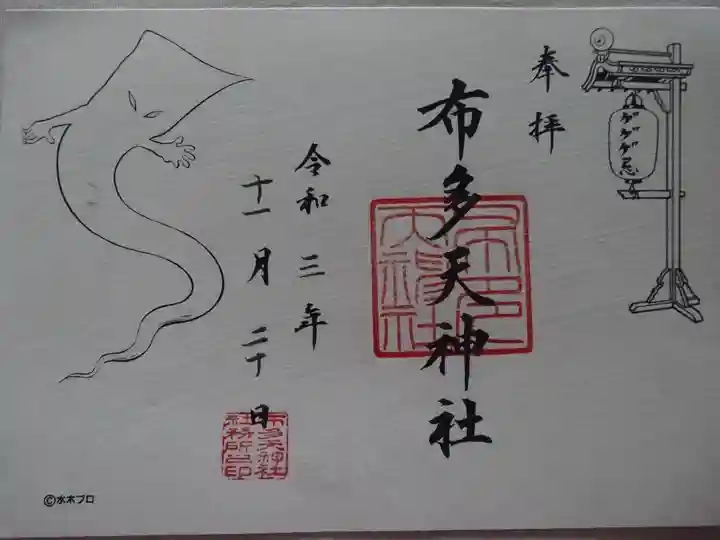 奉拝
ゲゲゲ忌
布多天神社
布多天神社
令和三年
十一月二十日
布多天神社
社務所之印
©水木プロ